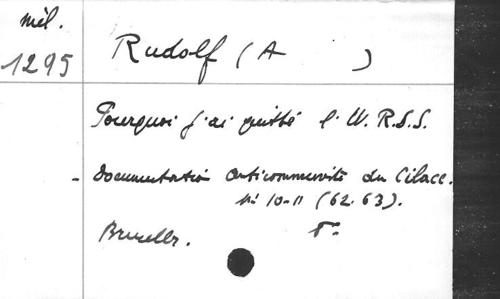 mél.
1295
Rudolf (A )
Pourquoi j'ai quitté l'U.R.S.S.
- Documentation anticommuniste du Cilacc.
n° 10-11 (62.63).
Bruxelles.